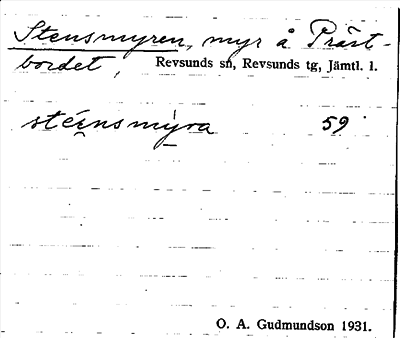 Stensmyren, myr å Präst-
bordet, Revsunds sn, Revsunds tg, Jämtl. l.
stérnsmýra 59
O. A. Gudmundson 1931.